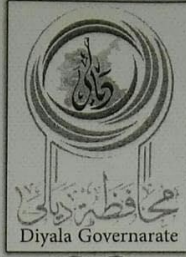 ديالى
محافظة ديالى
Diyala Governarate